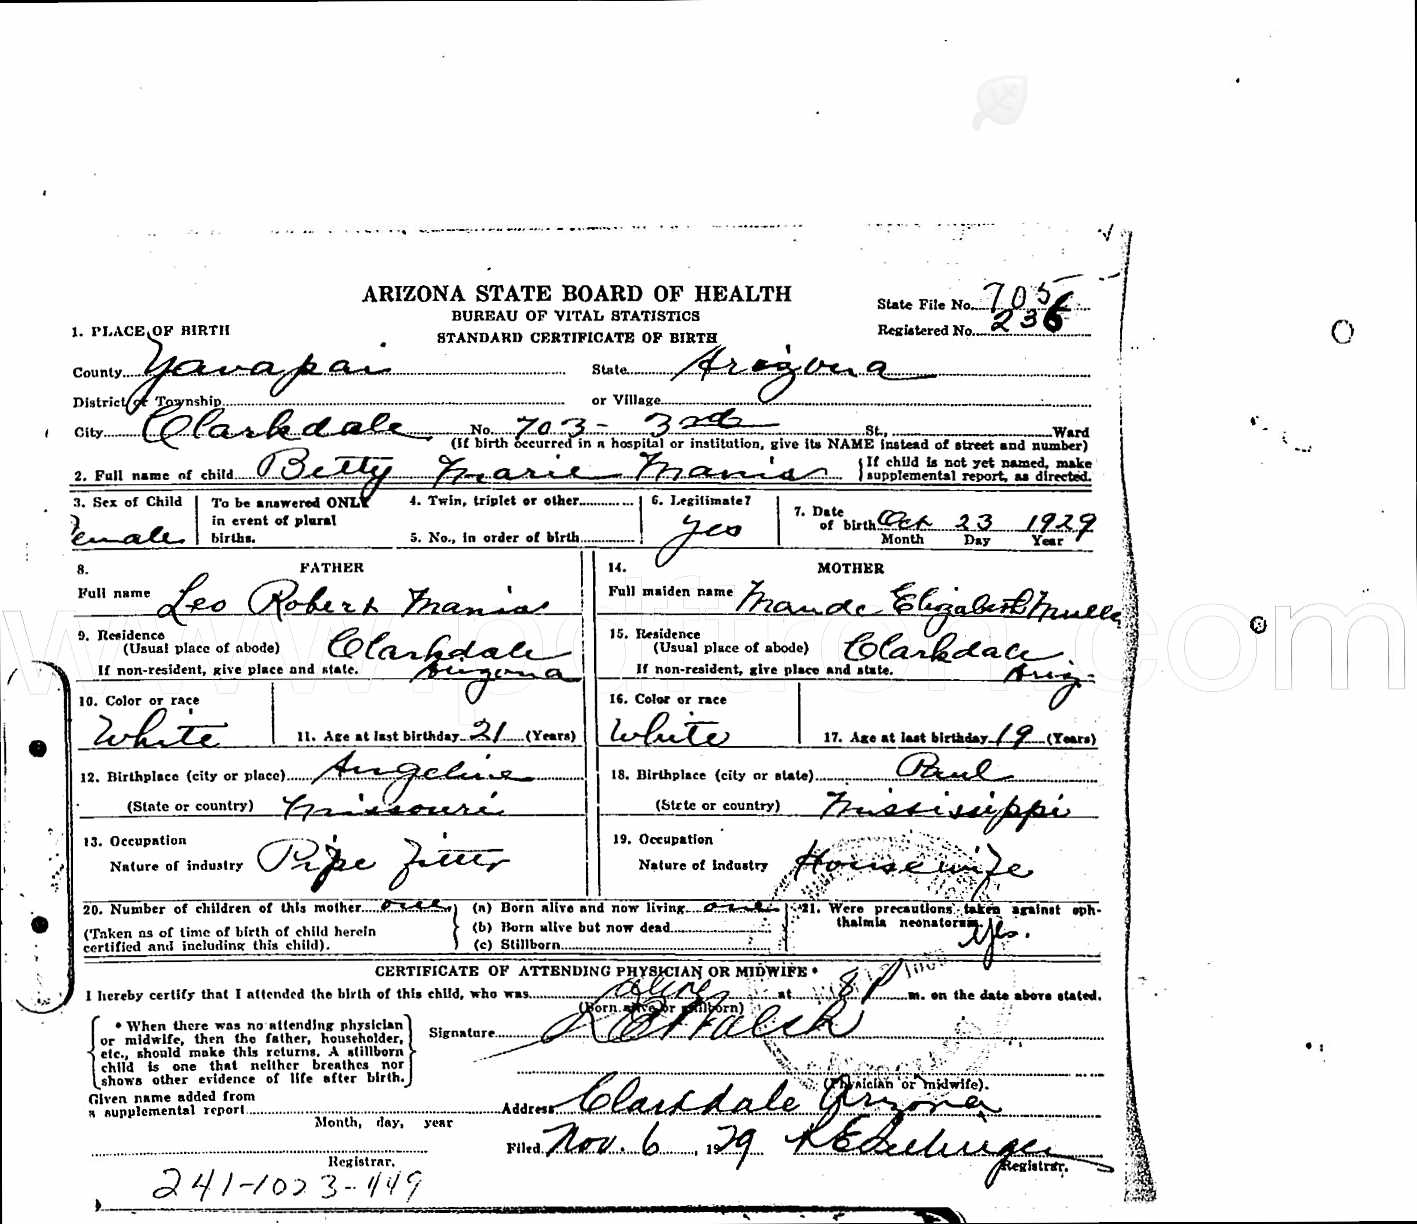 ARIZONA STATE BOARD OF HEALTH
BUREAU OF VITAL STATISTICS
STANDARD CERTIFICATE OF BIRTH
State File No. 705
Registered No. 236
1. PLACE OF BIRTH
County Yavapai State Arizona
District or Township or Village
City Clarkdale No. 703 - 3rd St., Ward
(If birth occurred in a hospital or institution, give its NAME instead of street and number)
2. Full name of child Betty Marie Manias { If child is not yet named, make supplemental report, as directed.
3. Sex of Child Female
To be answered ONLY in event of plural births.
4. Twin, triplet or other
5. No., in order of birth
6. Legitimate? yes
7. Date of birth Oct 23 1929
Month Day Year
8. FATHER
Full name Leo Robert Manias
9. Residence (Usual place of abode) Clarkdale
If non-resident, give place and state. Arizona
10. Color or race White
11. Age at last birthday 21 (Years)
12. Birthplace (city or place) Angeline
(State or country) Missouri
13. Occupation
Nature of industry Pipe Fitter
14. MOTHER
Full maiden name Maude Elizabeth
15. Residence (Usual place of abode) Clarkdale
If non-resident, give place and state. Ariz.
16. Color or race White
17. Age at last birthday 19 (Years)
18. Birthplace (city or state) Paul
(State or country) Mississippi
19. Occupation
Nature of industry Housewife
20. Number of children of this mother one
(Taken as of time of birth of child herein certified and including this child).
(a) Born alive and now living one
(b) Born alive but now dead
(c) Stillborn
21. Were precautions taken against ophthalmia neonatorum yes.
CERTIFICATE OF ATTENDING PHYSICIAN OR MIDWIFE *
I hereby certify that I attended the birth of this child, who was alive at 8 P m. on the date above stated.
(Born alive or stillborn)
* When there was no attending physician
or midwife, then the father, householder,
etc., should make this returns. A stillborn
child is one that neither breathes nor
shows other evidence of life after birth.
Signature Walsh
(Physician or midwife).
Given name added from
a supplemental report
Month, day, year
Address Clarkdale Arizona
Filed Nov. 6, 1929
Registrar.
Registrar.
241-1023-449